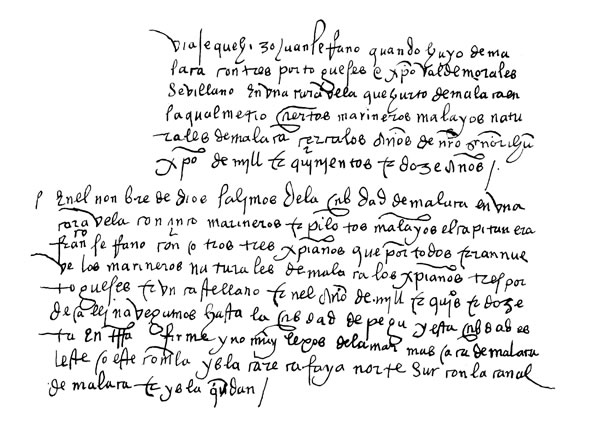 viaje que hizo Juan serano quando huyo de ma
laca con tres portogueses e xpo valdemorales
sevillano en vna caravela que hurto de malaca en
la qual metio ciertos marineros malayos natu
rales de malaca cerca los años de nro señor ihu
xpo de mill & quinientos & doze años /
En el nonbre de dios salimos de la cibdad de malaca en vna
caravela con cinco marineros & pilotos malayos el capitan era
franco serano con otros tres xpianos que por todos eran nue
ve los marineros naturales de malaca los xpianos tres por
togueses & vn castellano & en el año de mill & quios & doze
de alli navegamos hasta la cibdad de pegu y esta cibdad es
ta en trra firme y no muy lexos de la mar mas çerca de malaca
leste oeste con la ysla norte sur con la canal
de malaca & ysla